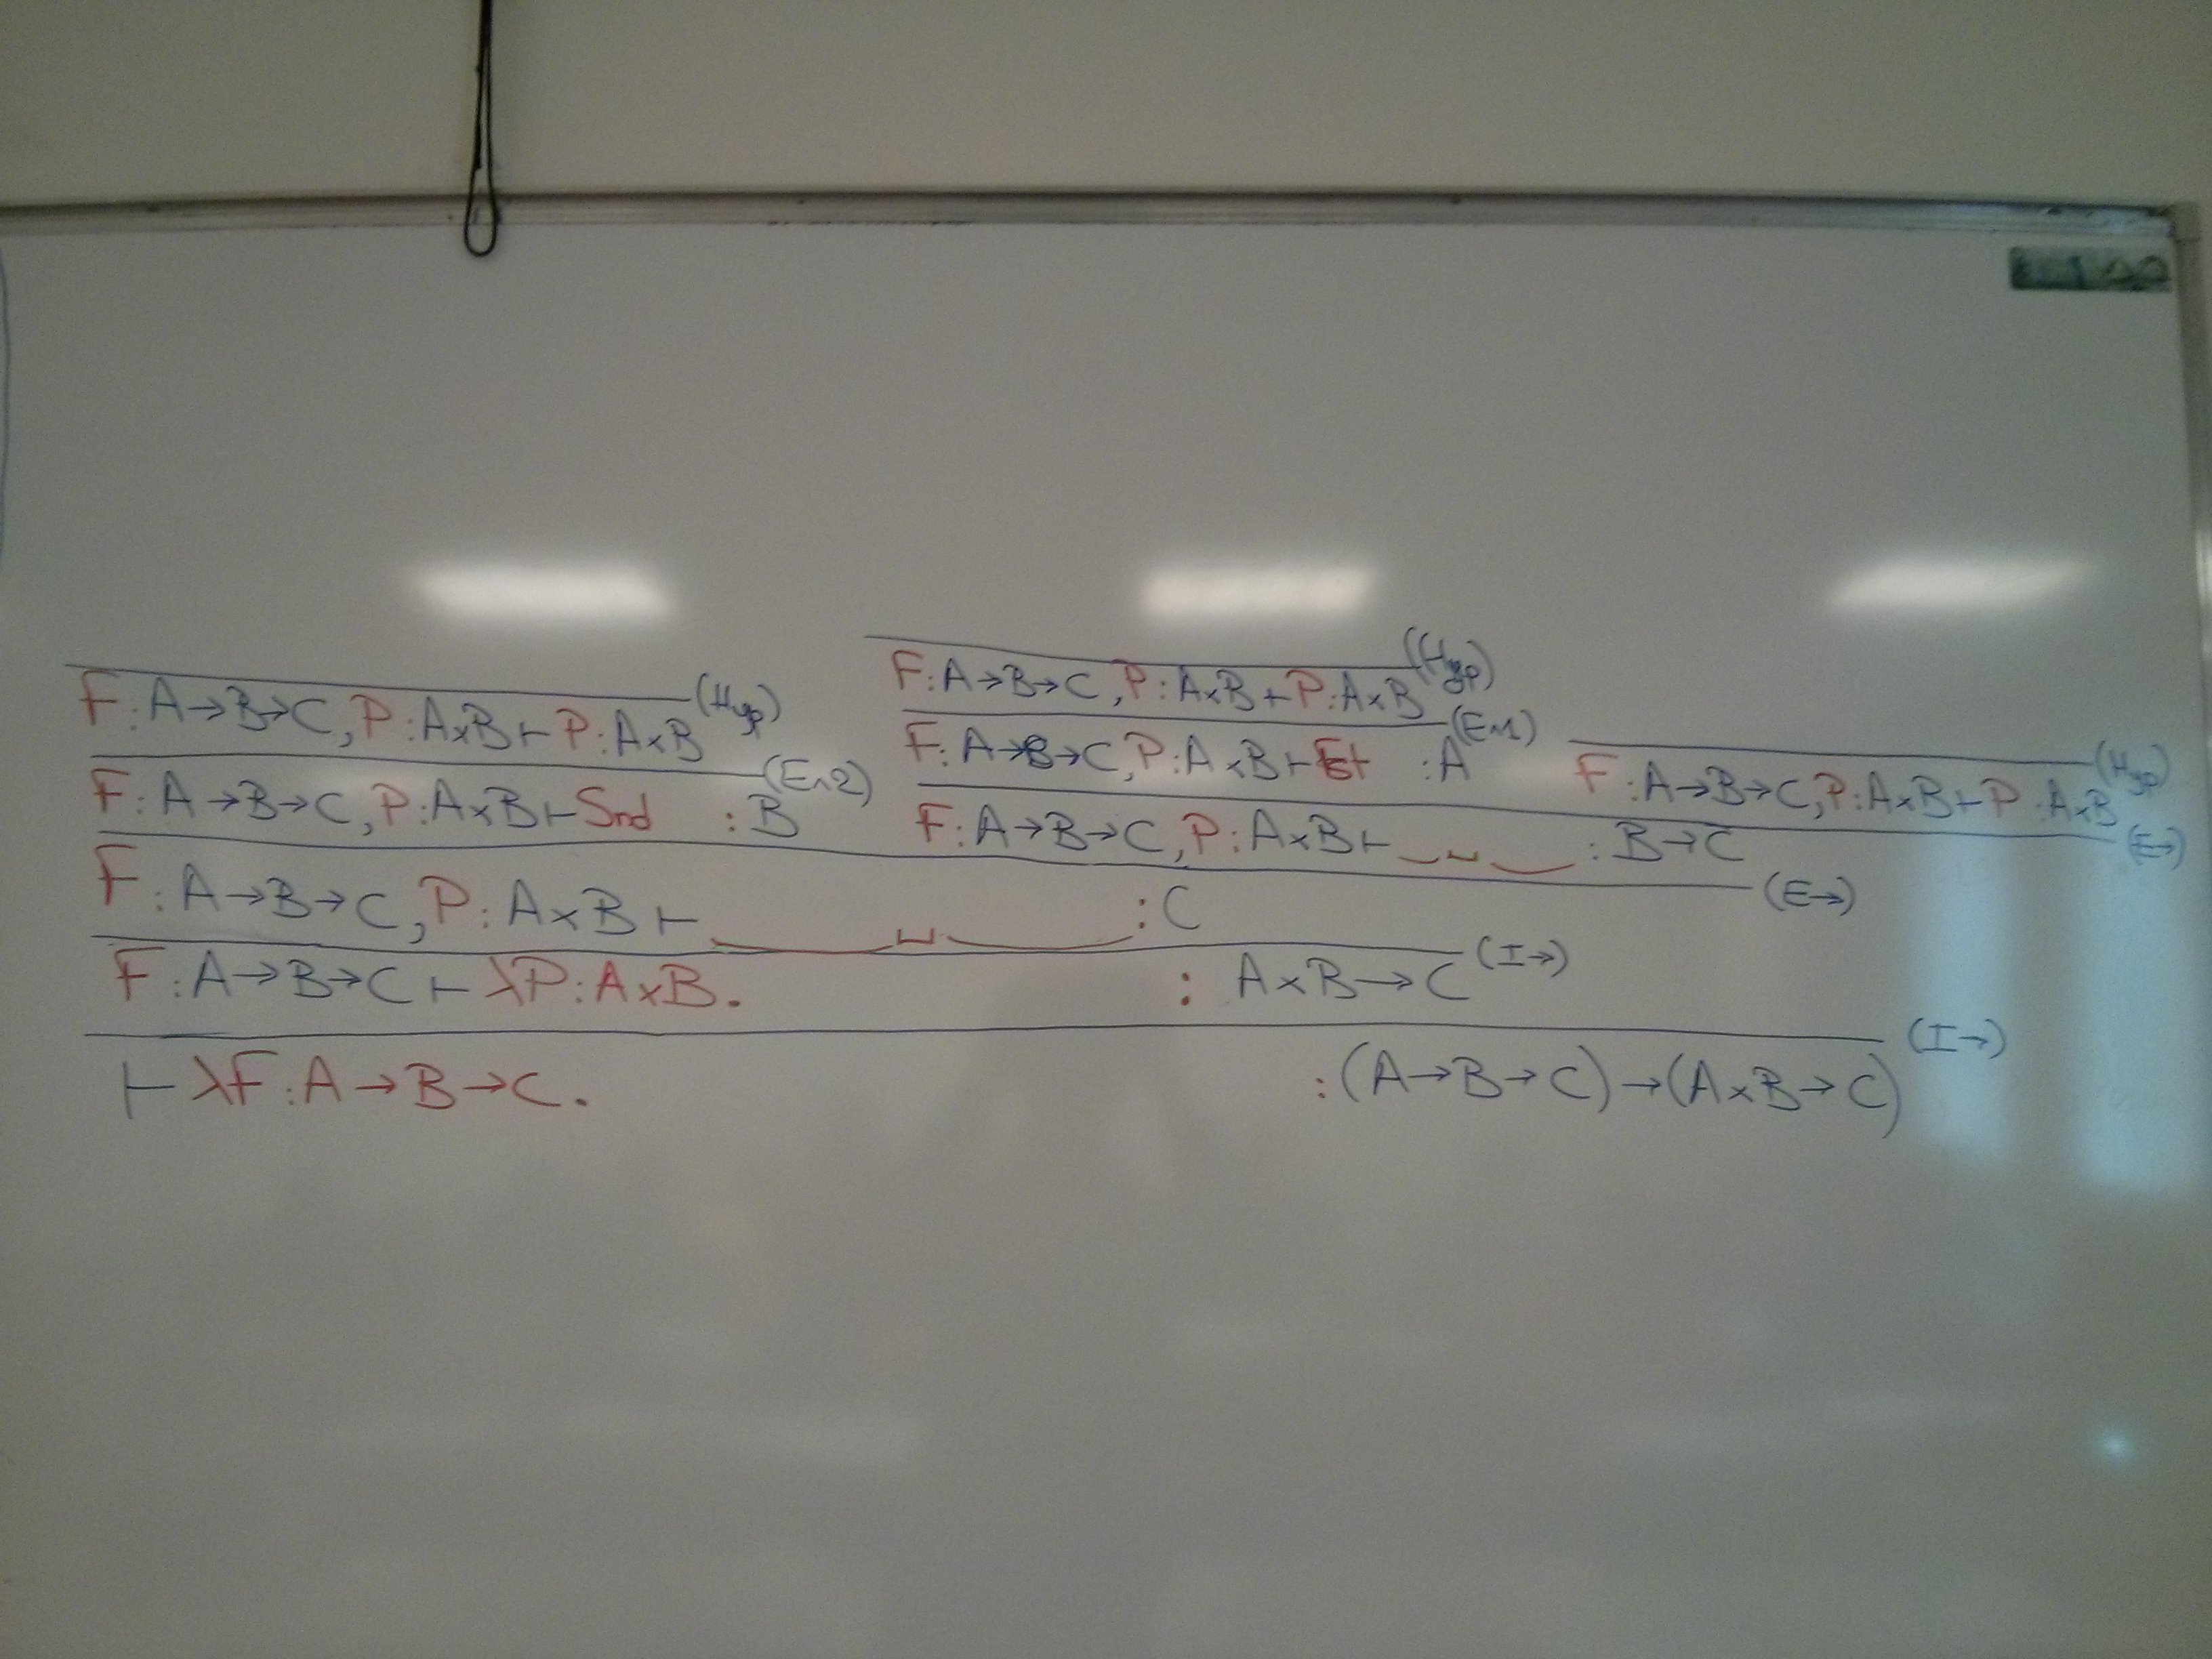 F:A→B→C,P:A×B⊢P:A×B (Hyp)
F:A→B→C,P:A×B⊢P:A×B (Hyp)
F:A→B→C,P:A×B⊢Snd :B (E∧2)
F:A→B→C,P:A×B⊢Fst :A (E∧1)
F:A→B→C,P:A×B⊢P:A×B (Hyp)
F:A→B→C,P:A×B⊢ _ ␣ _ :B→C (E→)
F:A→B→C,P:A×B⊢ _ ␣ _ :C (E→)
F:A→B→C⊢λP:A×B. : A×B→C (I→)
⊢λF:A→B→C. :(A→B→C)→(A×B→C) (I→)